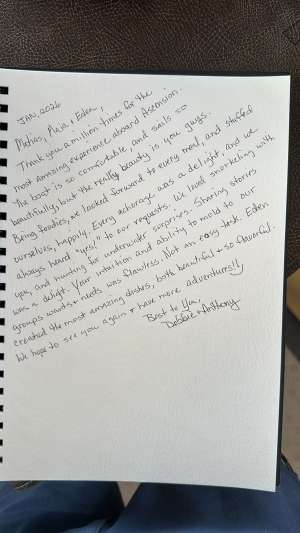 JAN, 2026
Matius, Mia + Eden,
Thank you a million times for the
most amazing experience aboard Ascension.
The boat is so comfortable, and sails so
beautifully, but the really beauty is you guys.
Being foodies, we looked forward to every meal, and stuffed
ourselves, happily. Every anchorage was a delight, and we
always heard "yes!" to our requests. We loved snorkeling with
you, and hunting for underwater surprises. Sharing stories
was a delight. Your intuition and ability to mold to our
groups wants + needs was flawless. Not an easy task. Eden
created the most amazing dishes, both beautiful + so flavorful.
We hope to see you again + have more adventures!!
Best to You,
Debbie + Anthony